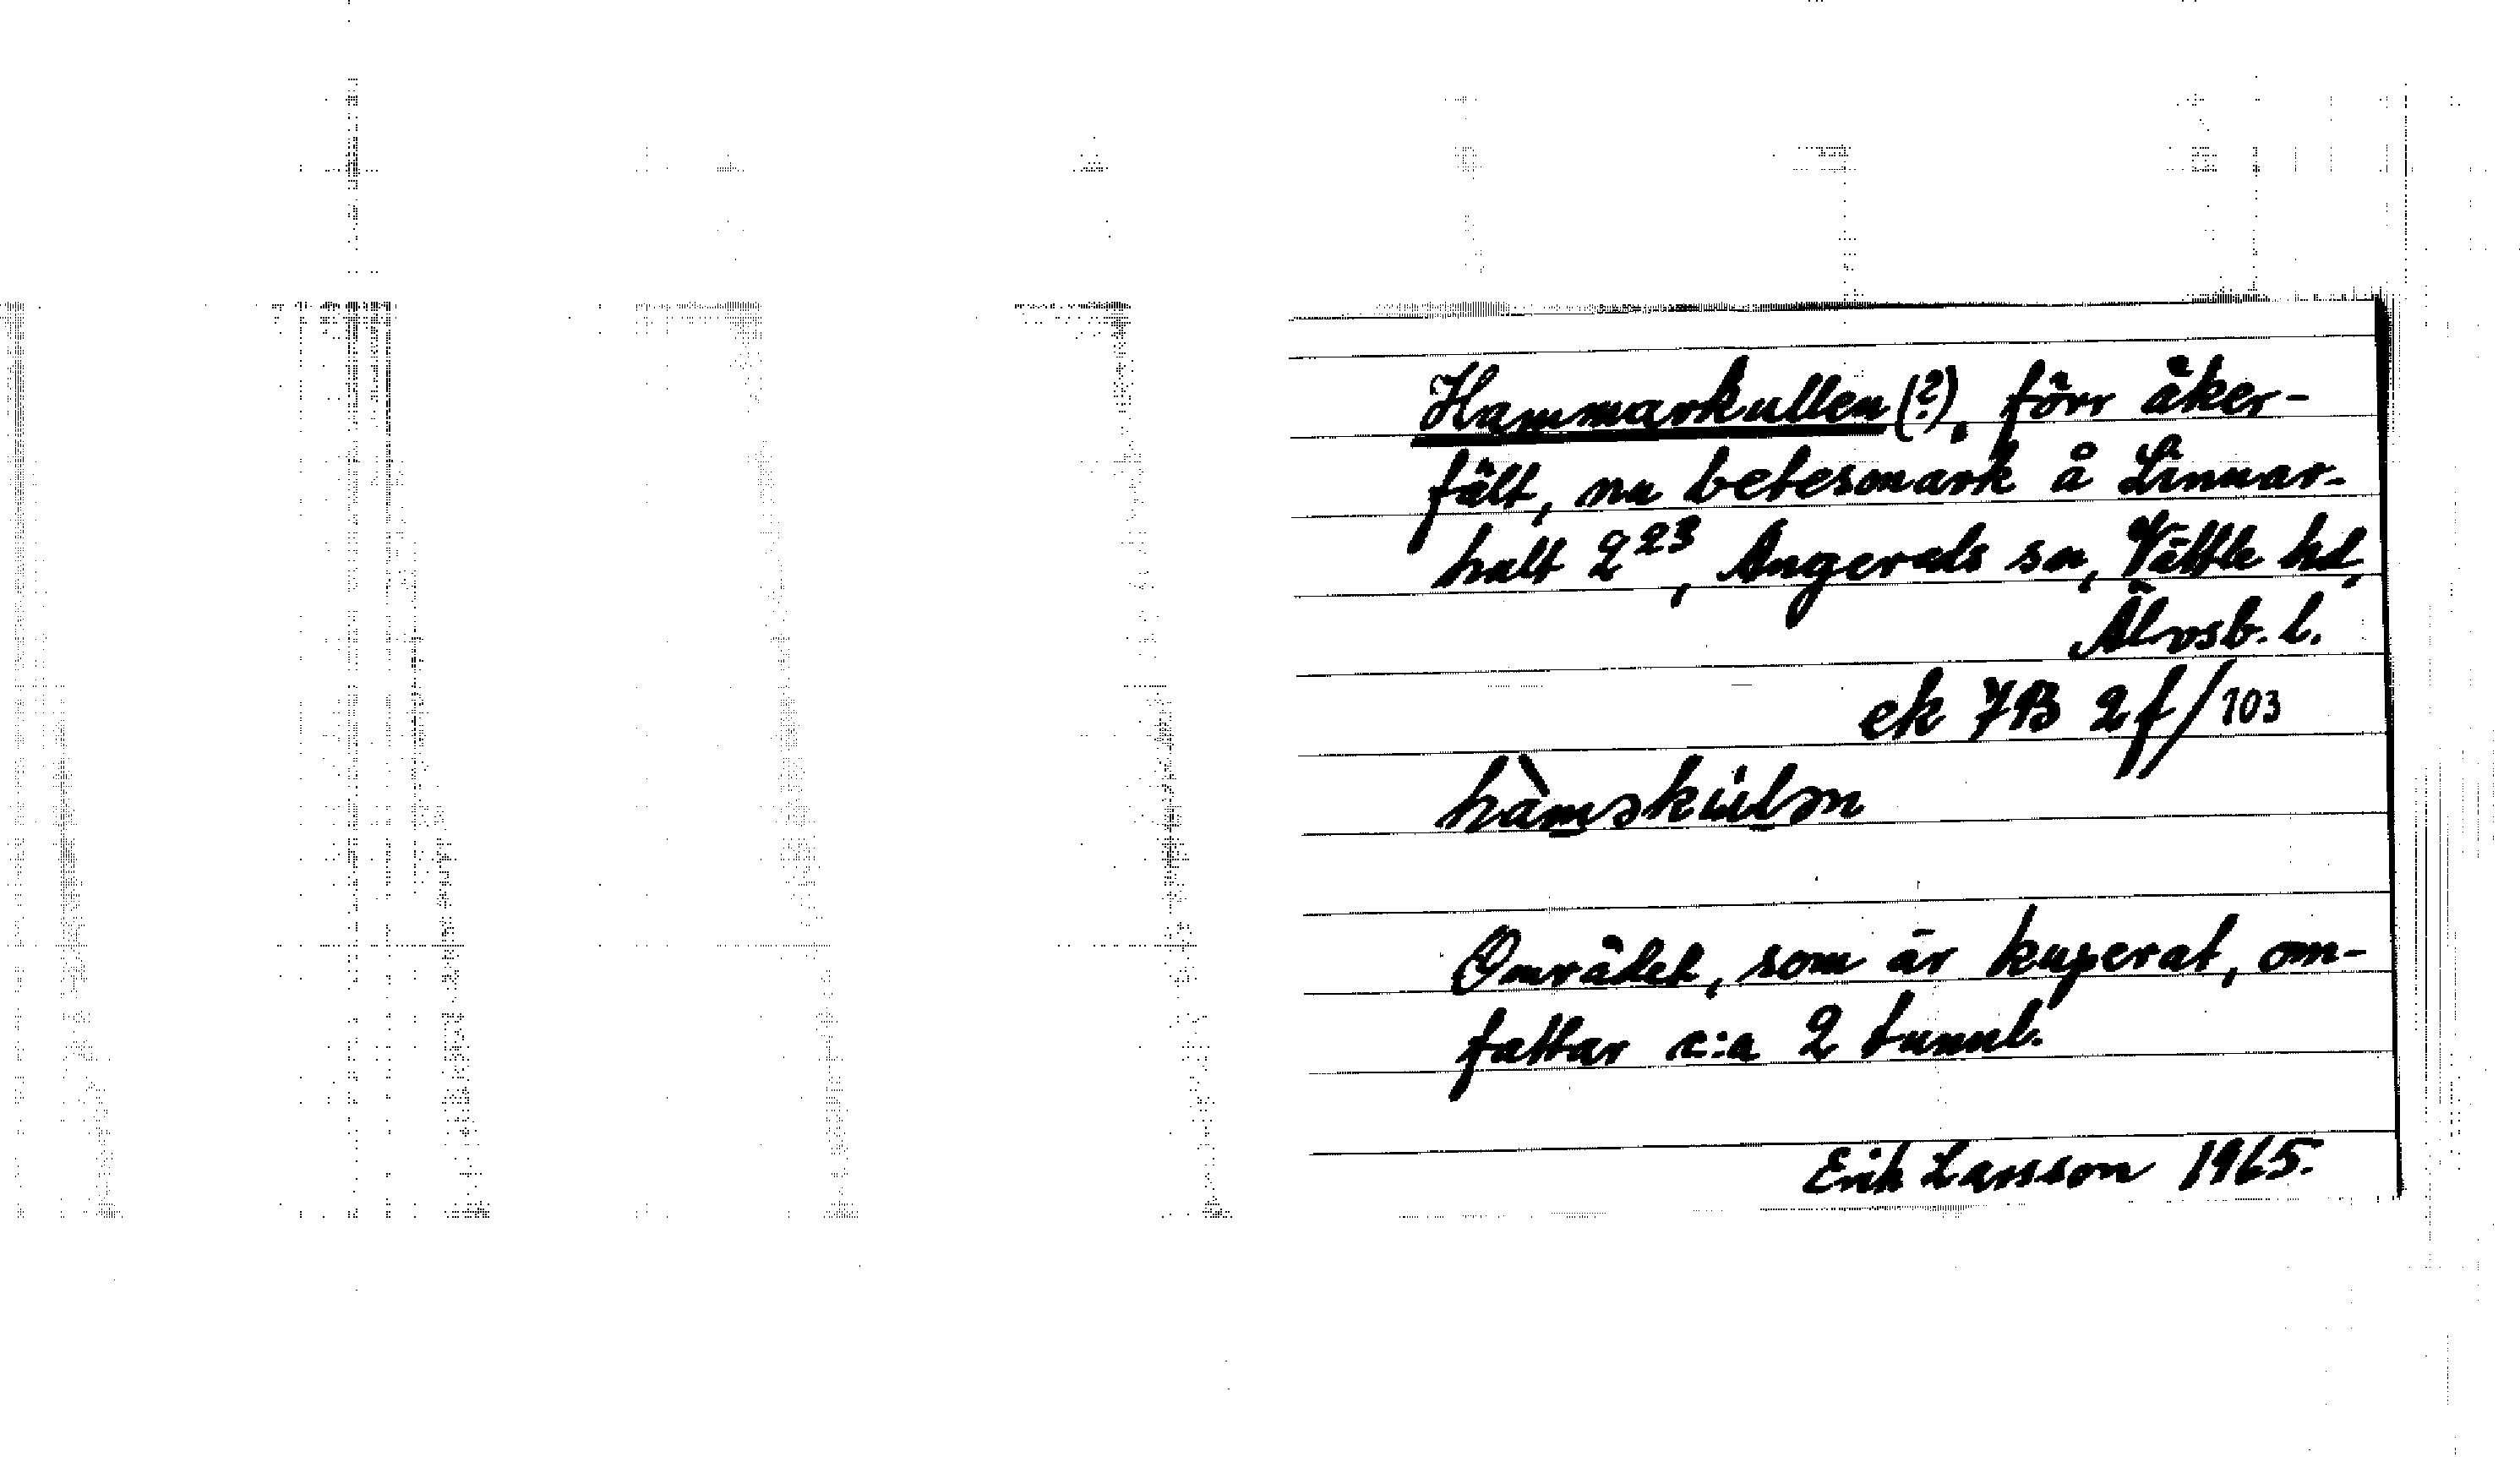 Hammarkullen (?), förr åker-
fält, nu betesmark å Linnar-
hult 2²³, Angereds sn, Vättle hd,
Älvsb. l.
ek 7B 2f/103
hàməkùlən
Området, som är kuperat, om-
fattar c:a 2 tunnl.
Erik Larsson 1965.